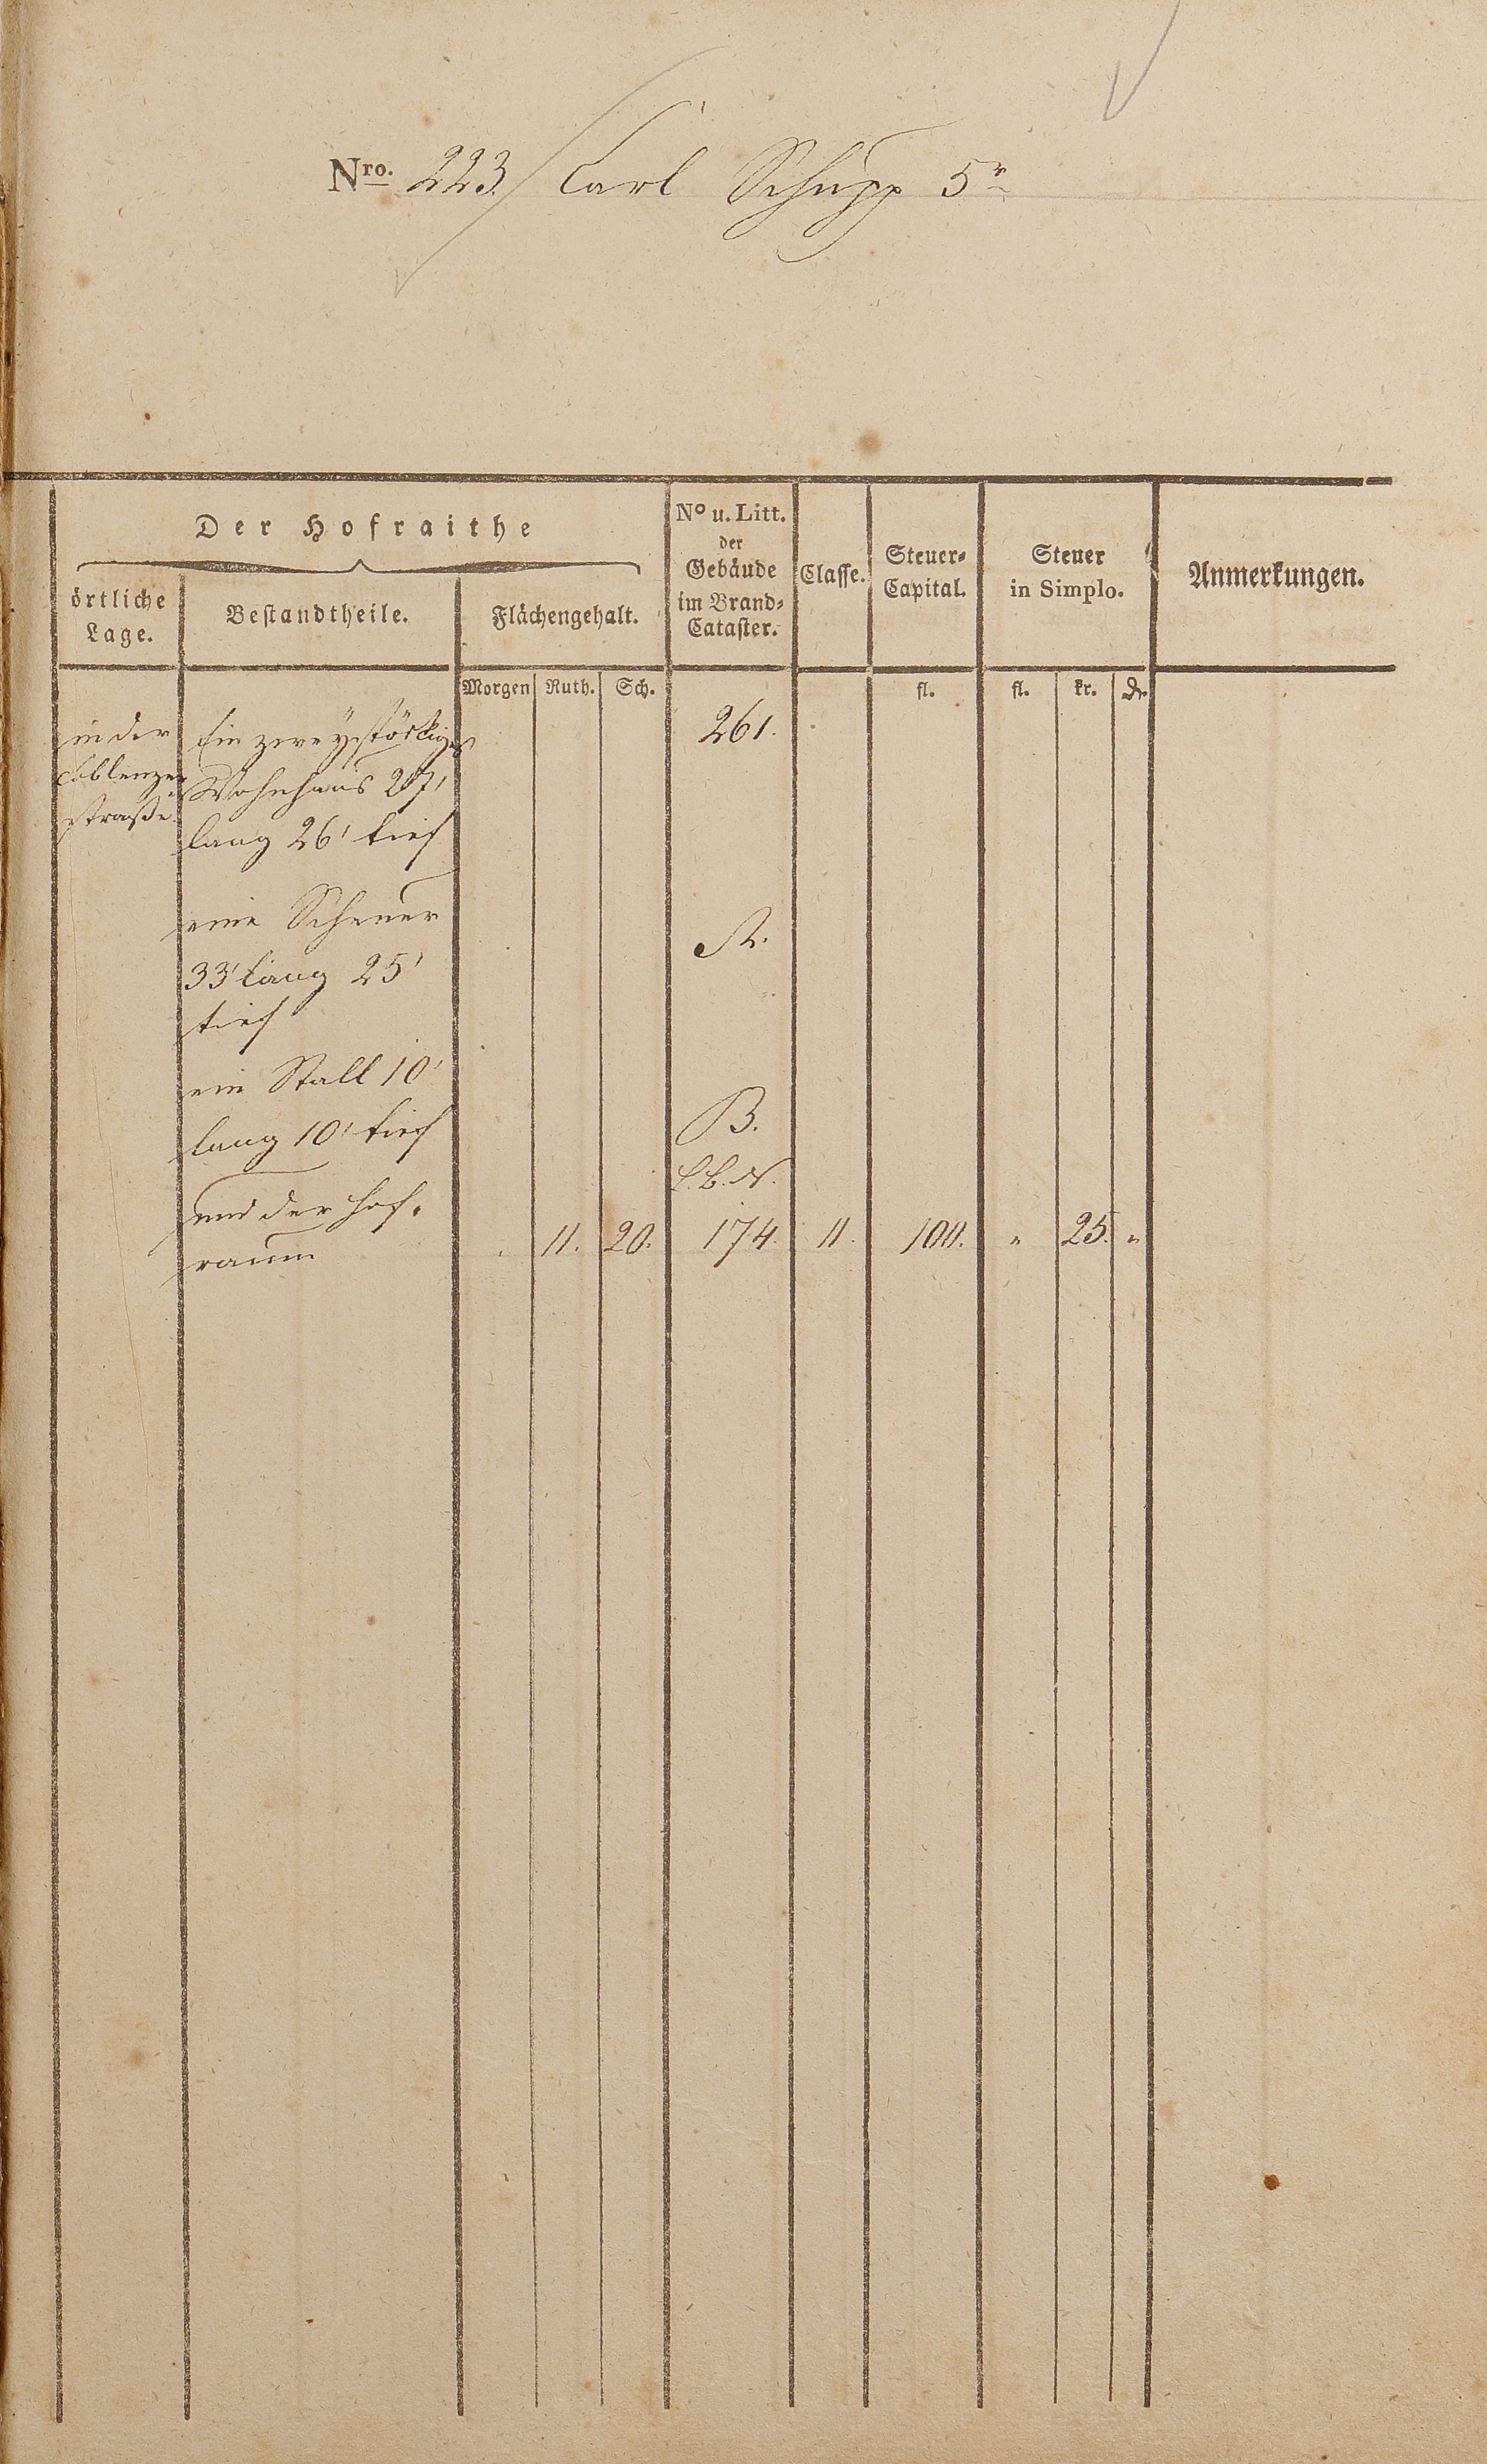 Nro. 223. Carl Schupp 5r
Der Hofraithe
örtliche Lage.
Bestandtheile.
Flächengehalt.
No u. Litt. der Gebäude im Brand-Cataster.
Classe.
Steuer-Capital.
Steuer in Simplo.
Anmerkungen.
Morgen Ruth. Sch. fl. fl. kr. dr.
in der
Coblenzer
straße.
Ein zweystöckiges 261.
Wohnhaus 27'
lang 26' tief
eine Scheuer A.
33' lang 25'
tief
ein Stall 10'
lang 10' tief B.
L.B.N.
und der Hof-
raum 11. 20. 174. 11. 100. " 25. "